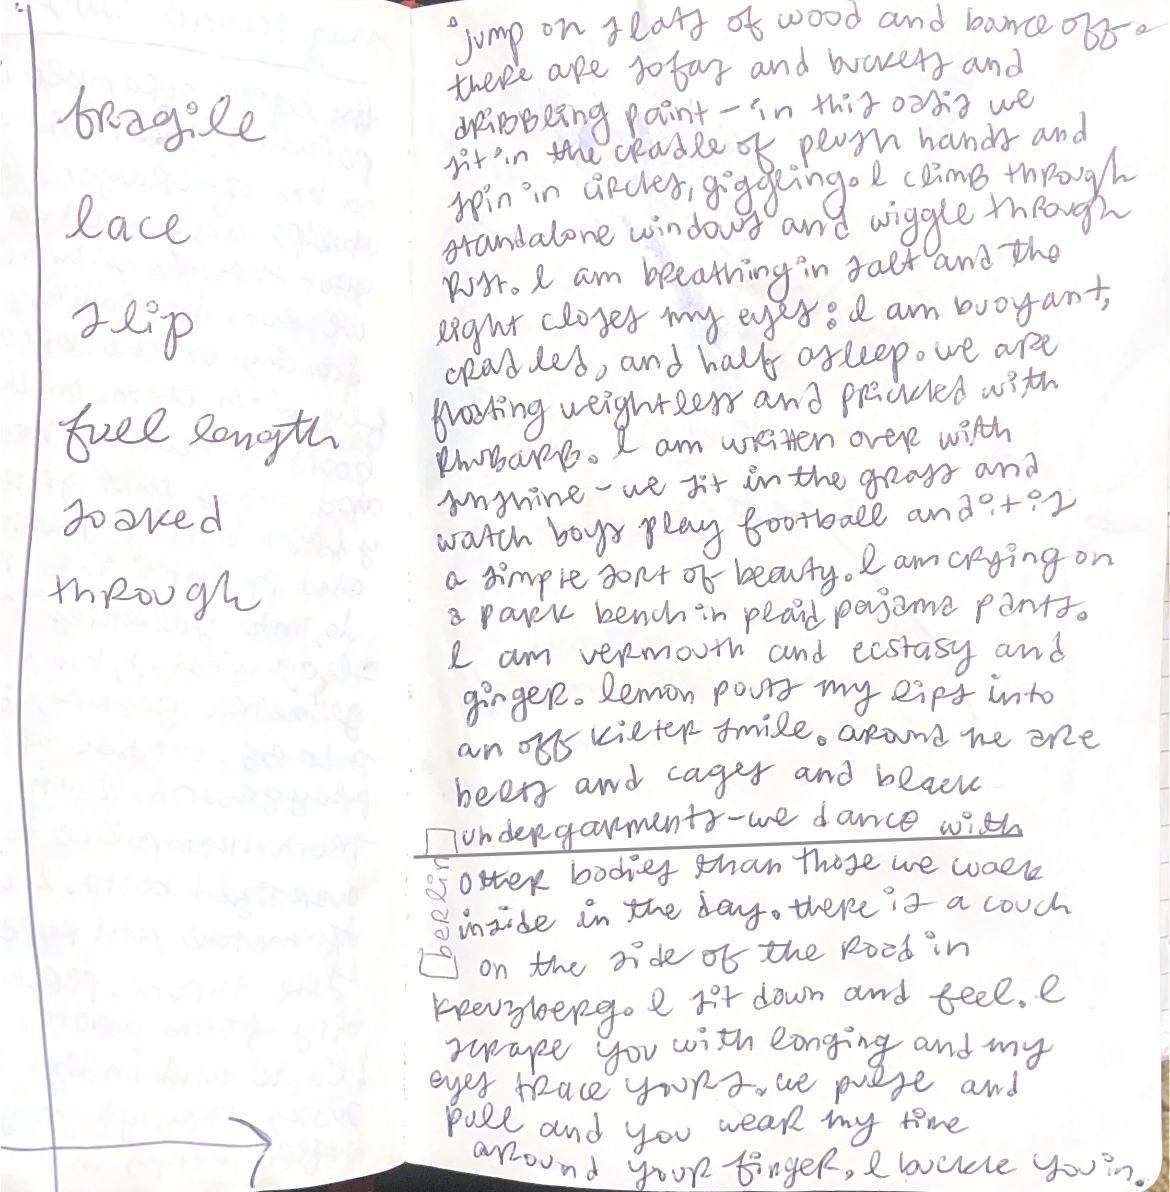 fragile
lace
slip
full length
soaked
through
jump on slats of wood and bounce off.
there are sofas and buckets and
dribbling paint - in this oasis we
sit in the cradle of plush hands and
spin in circles, giggling. I climb through
standalone windows and wiggle through
rust. I am breathing in salt and the
light closes my eyes: I am buoyant,
cradled, and half asleep. we are
floating weightless and prickled with
rhubarb. I am written over with
sunshine - we sit in the grass and
watch boys play football and it is
a simple sort of beauty. I am crying on
a park bench in plaid pajama pants.
I am vermouth and ecstasy and
ginger. lemon pouts my lips into
an off kilter smile. around me are
belts and cages and black
undergarments - we dance with
berlin
other bodies than those we walk
inside in the day. there is a couch
on the side of the road in
kreuzberg. I sit down and feel. I
scrape you with longing and my
eyes trace yours. we pulse and
pull and you wear my time
around your finger. I buckle you in.